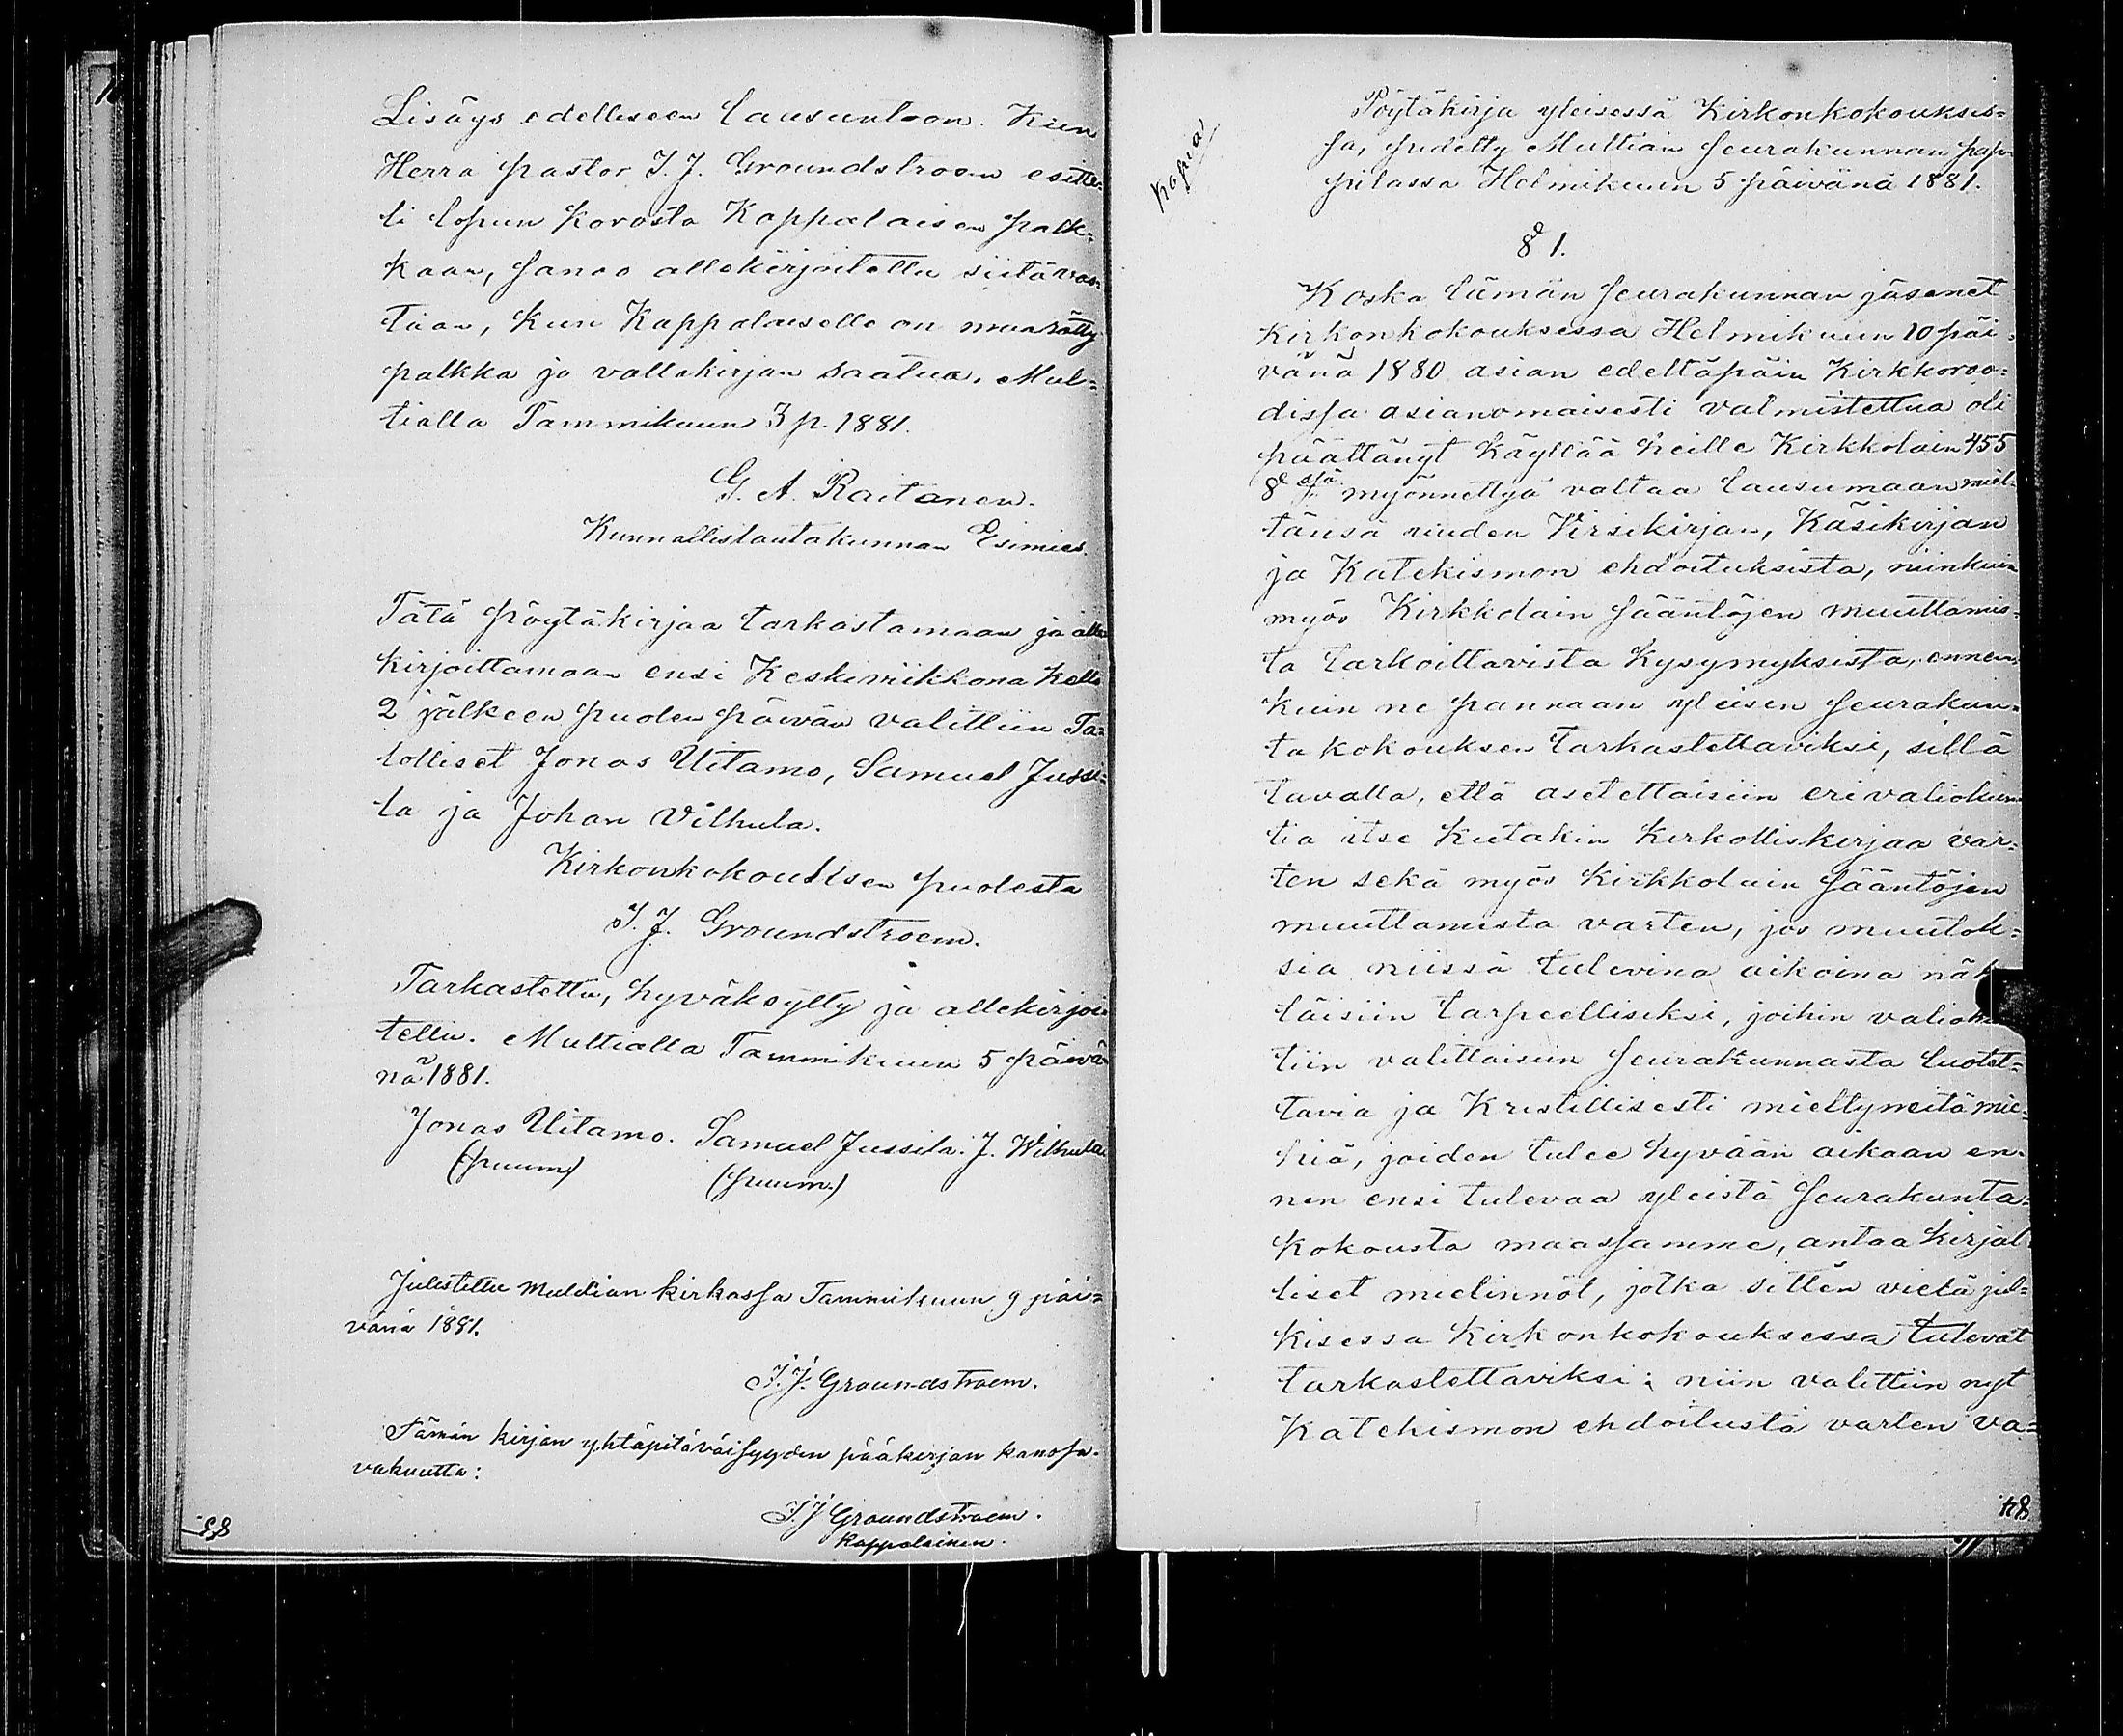 Lisäys edelliseen lausuntoon. Kun
Herra pastor I. J. Groundstroem esitte-
li lopun korosta Kappalaisen palk-
kaan, sanoo allekirjoitettu siitä vas-
taan, kun Kappalaiselle on määrätty
palkka jo vallakirjan saatua. Mul-
tialla Tammikuun 3 p. 1881.
G. A. Raitanen.
Kunnallislautakunnan Esimies.
Tätä pöytäkirjaa tarkastamaan ja alle
kirjoittamaan ensi Keskiviikkona kello
2 jälkeen puolen päivän valittiin Ta-
lolliset Jonas Uitamo, Samuel Jussi-
la ja Johan Vilhula.
Kirkonkokouksen puolesta
I. J. Groundstroem.
Tarkastettu, hyväksytty ja allekirjoi-
tettu. Multialla Tammikuun 5 päivä-
nä 1881.
Jonas Uitamo. Samuel Jussila. J. Wilhula
(puum.) (puum.)
Julistettu Multian kirkossa Tammikuun 9 päi-
vänä 1881.
I. J. Groundstroem.
Tämän kirjan yhtäpitäväisyyden pääkirjan kanssa
vakuutta:
I. J. Groundstroem.
Kappalainen.
83
Kopia
Pöytäkirja yleisessä Kirkonkokoukses-
sa, pidetty Multian seurakunnan pap-
pilassa Helmikuun 5 päivänä 1881.
§ 1.
Koska tämän seurakunnan jäsenet
kirkonkokouksessa Helmikuun 10 päi-
vänä 1880 asian edeltäpäin Kirkkoraa-
dissa asianomaisesti valmistettua oli
päättänyt käyttää heille Kirkkolain 455
§ssä myönnettyä valtaa lausumaan miel-
tänsä uuden Virsikirjan, Käsikirjan
ja Katekismon ehdoituksista, niinkuin
myös Kirkkolain sääntöjen muuttamis-
ta tarkoittavista kysymyksistä, ennen-
kuin ne pannaan yleisen seurakun-
ta kokouksen tarkastettaviksi, sillä
tavalla, että asetettaisiin erivaliokun
tia itse kutakin kirkolliskirjaa var-
ten sekä myös kirkkolain sääntöjen
muuttamista varten, jos muutok-
sia niissä tulevina aikoina näh
täisiin tarpeelliseksi, joihin valiok
tiin valittaisiin seurakunnasta luotet-
tavia ja Kristillisesti mieltyneitä mie-
hiä, joiden tulee hyvään aikaan en-
nen ensi tulevaa yleistä seurakunta-
kokousta maassamme, antaa kirjal-
liset mielinnöt, jotka sitten vielä jul-
kisessa Kirkonkokouksessa tulevat
tarkastettaviksi; niin valittiin nyt
Katekismon ehdoitusta varten va-
84